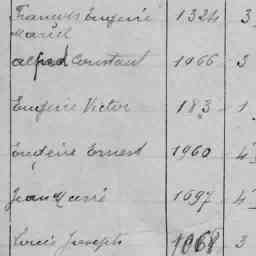 François Eugène 1324 3
Marcel
Alfred Constant 1966 3
Eugène Victor 183 1
Eugène Ernest 1960 4
Jean Marie 1697 4
Louis Joseph 1068 3